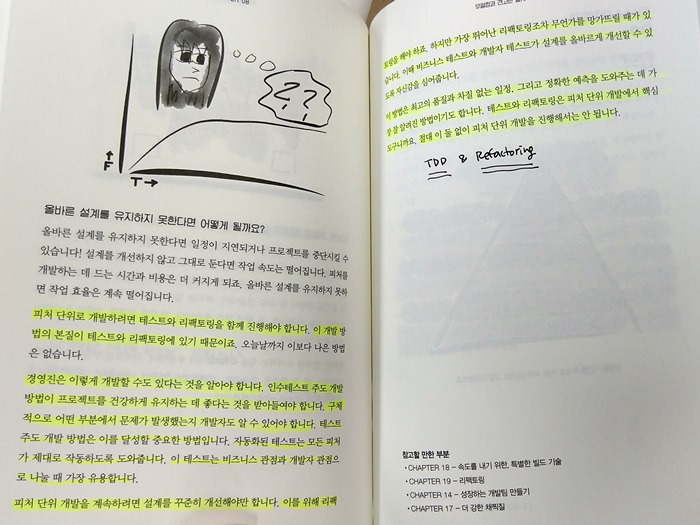 08
??
F
T
올바른 설계를 유지하지 못한다면 어떻게 될까요?
올바른 설계를 유지하지 못한다면 일정이 지연되거나 프로젝트를 중단시킬 수
있습니다! 설계를 개선하지 않고 그대로 둔다면 작업 속도는 떨어집니다. 피처를
개발하는 데 드는 시간과 비용은 더 커지게 되죠. 올바른 설계를 유지하지 못하
면 작업 효율은 계속 떨어집니다.
피처 단위로 개발하려면 테스트와 리팩토링을 함께 진행해야 합니다. 이 개발 방
법의 본질이 테스트와 리팩토링에 있기 때문이죠. 오늘날까지 이보다 나은 방법
은 없습니다.
경영진은 이렇게 개발할 수도 있다는 것을 알아야 합니다. 인수테스트 주도 개발
방법이 프로젝트를 건강하게 유지하는 데 좋다는 것을 받아들여야 합니다. 구체
적으로 어떤 부분에서 문제가 발생했는지 개발자도 알 수 있어야 합니다. 테스트
주도 개발 방법은 이를 달성할 중요한 방법입니다. 자동화된 테스트는 모든 피처
가 제대로 작동하도록 도와줍니다. 이 테스트는 비즈니스 관점과 개발자 관점으
로 나눌 때 가장 유용합니다.
피처 단위 개발을 계속하려면 설계를 꾸준히 개선해야만 합니다. 이를 위해 리팩
토링을 해야 하죠. 하지만 가장 뛰어난 리팩토링조차 무언가를 망가뜨릴 때가 있
습니다. 이때 비즈니스 테스트와 개발자 테스트가 설계를 올바르게 개선할 수 있
도록 자신감을 심어줍니다.
이 방법은 최고의 품질과 차질 없는 일정, 그리고 정확한 예측을 도와주는 데 가
장 잘 알려진 방법이기도 합니다. 테스트와 리팩토링은 피처 단위 개발에서 핵심
도구니까요. 절대 이 둘 없이 피처 단위 개발을 진행해서는 안 됩니다.
TDD & Refactoring
참고할 만한 부분
• CHAPTER 18 – 속도를 내기 위한, 특별한 빌드 기술
• CHAPTER 19 – 리팩토링
• CHAPTER 14 – 성장하는 개발팀 만들기
• CHAPTER 17 – 더 강한 채찍질